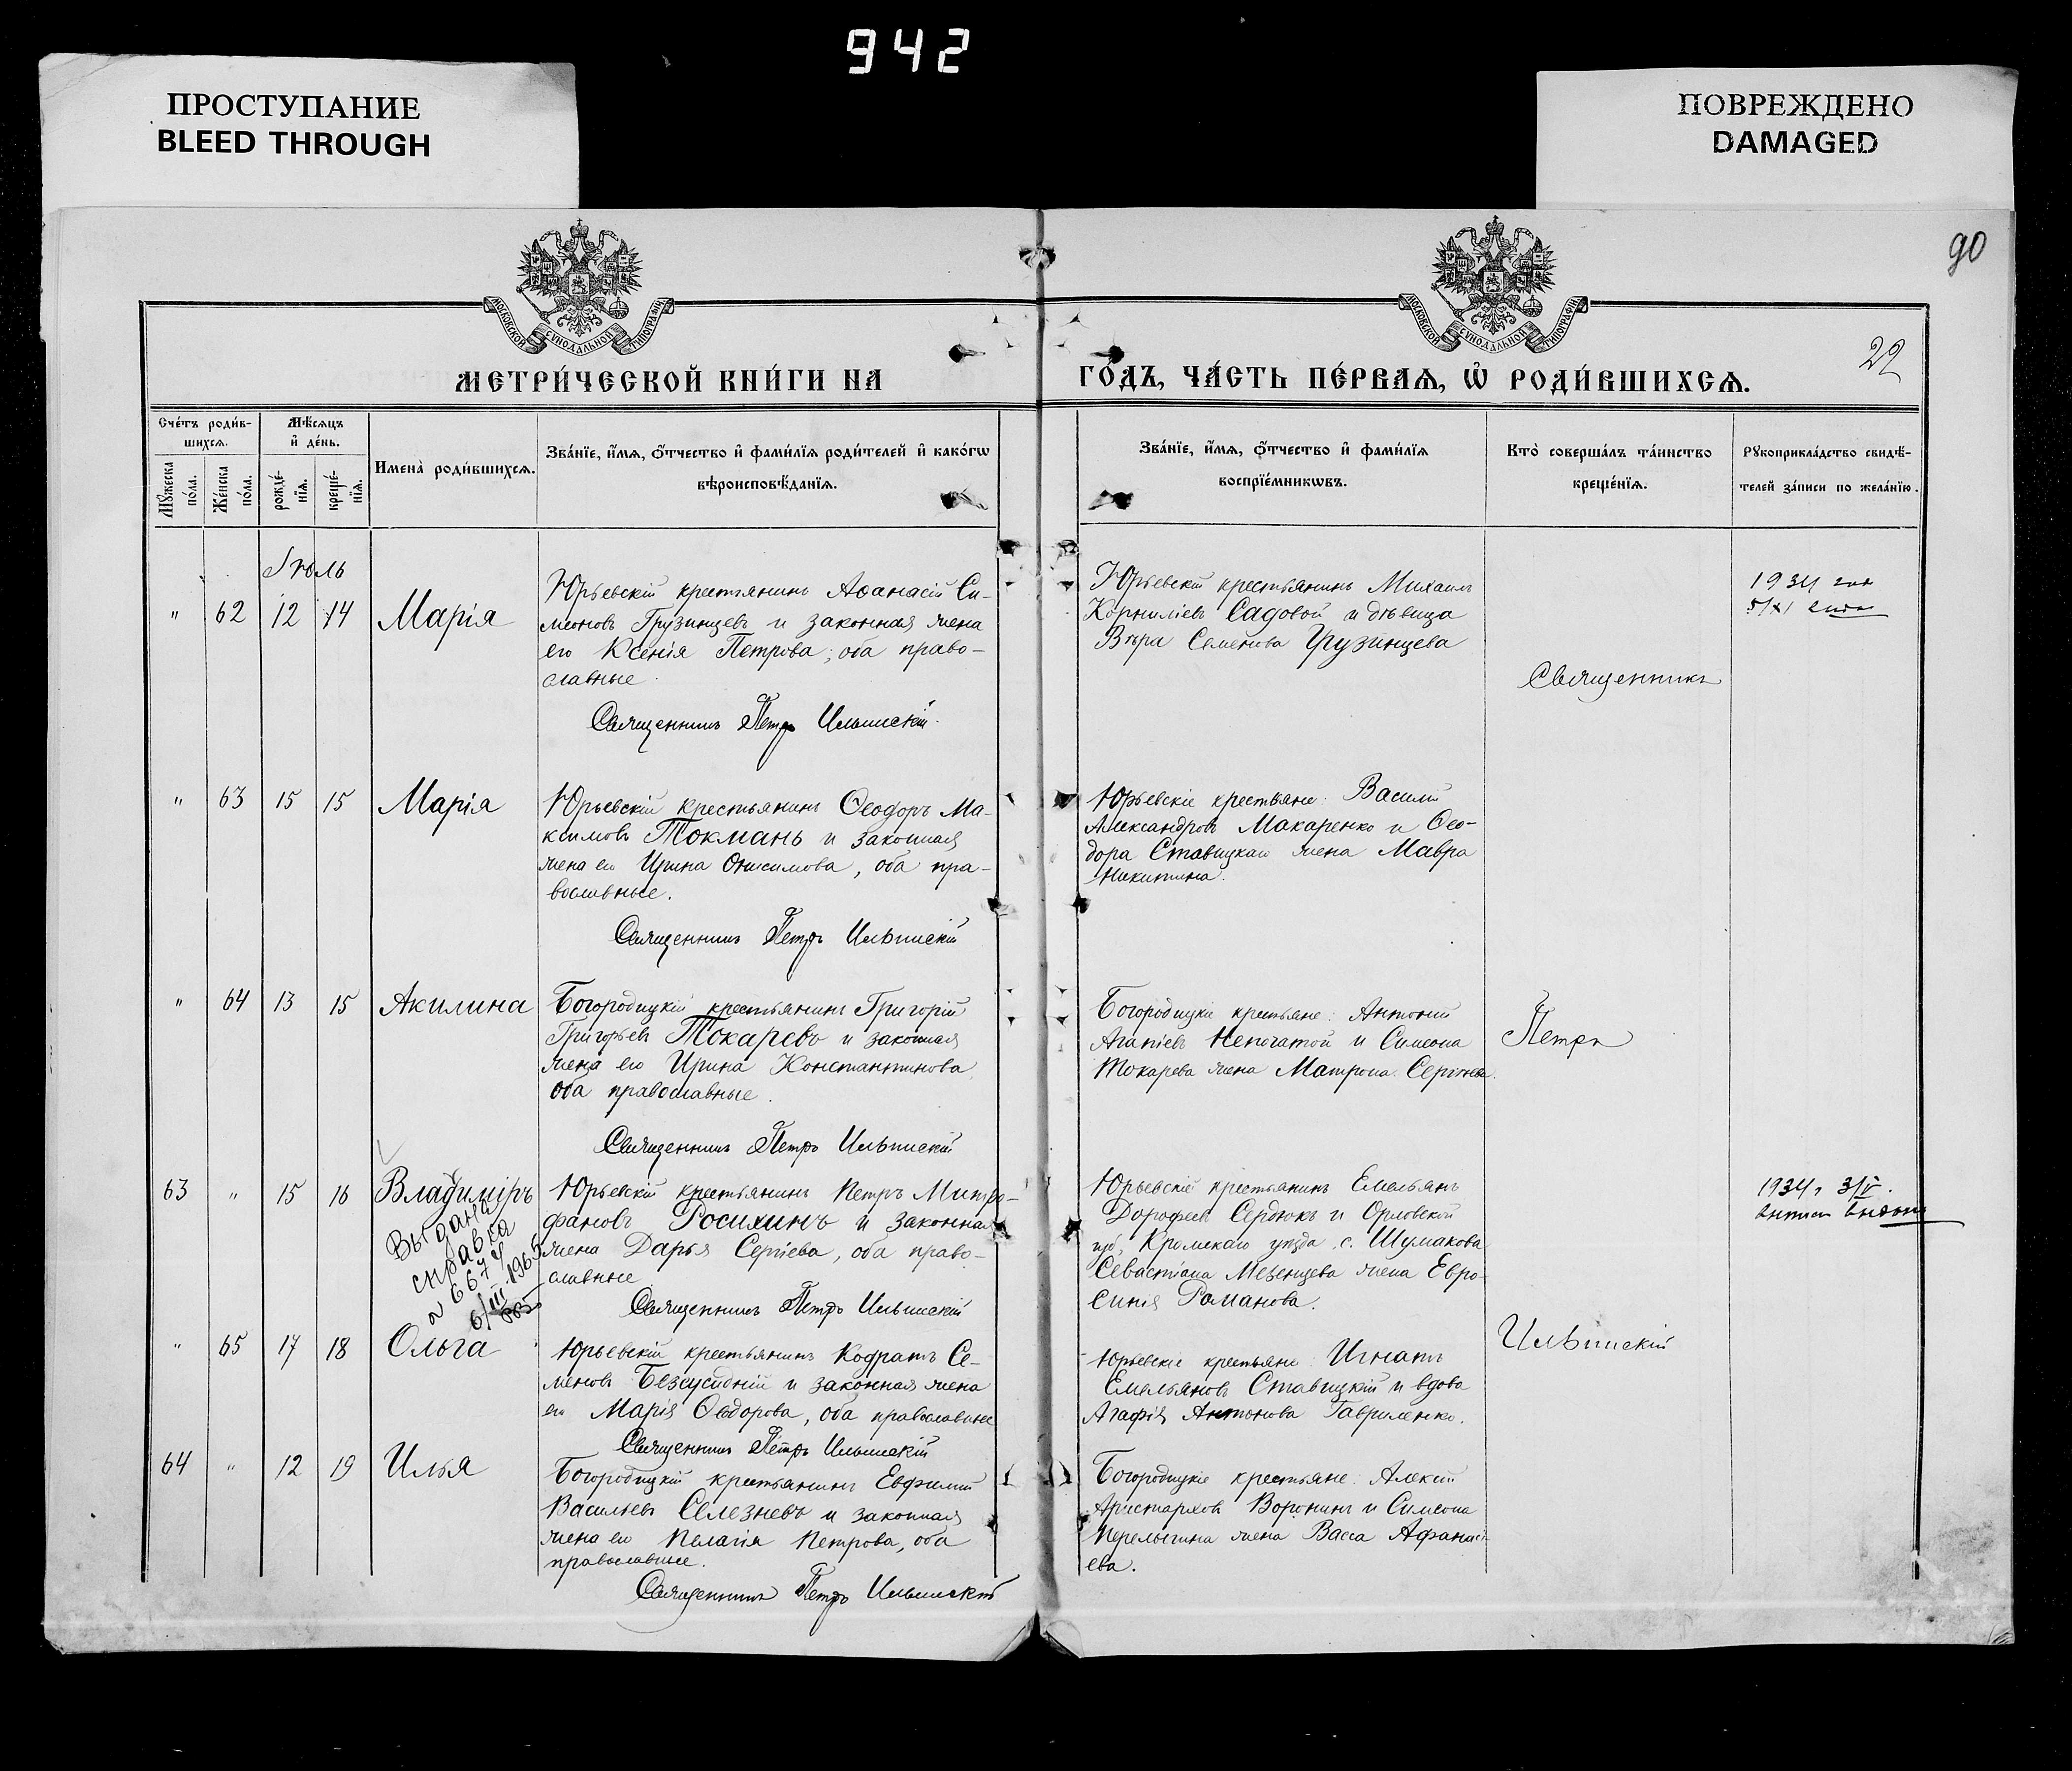 942
ПРОСТУПАНИЕ
BLEED THROUGH
ПОВРЕЖДЕНО
DAMAGED
90
22
МОСКОВСКОЙ СѴНОДАЛЬНОЙ ТИПОГРАФІИ
МОСКОВСКОЙ СѴНОДАЛЬНОЙ ТИПОГРАФІИ
МЕТРИ́ЧЕСКОЙ КНИ́ГИ НА
ГО́ДЪ, ЧА́СТЬ ПЕ́РВАѦ, Ѡ҆ РОДИ́ВШИХСѦ.
Сче́тъ роди́в-
шихсѧ.
Мѣ́сѧцъ
и҆ де́нь.
Мꙋ́жеска
по́ла.
Же́нска
по́ла.
рожде́-
нїѧ.
креще́-
нїѧ.
Имена̀ роди́вшихсѧ.
Зва́нїе, и҆́мѧ, ѻ҆́тчество и҆ фами́лїѧ роди́телей и҆ како́гѡ
вѣроисповѣ́данїѧ.
Зва́нїе, и҆́мѧ, ѻ҆́тчество и҆ фами́лїѧ
воспрїе́мникѡвъ.
Кто̀ соверша́лъ та́инство
креще́нїѧ.
Рꙋкоприкла́дство свидѣ́-
телей за́писи по жела́нїю.
Іюль
" 62 12 14 Марія
Юрьевскій крестьянинъ Аѳанасій Си-
меоновъ Грузинцевъ и законная жена
его Ксенія Петрова; оба право-
славные.
Священникъ Петръ Ильинскій.
Юрьевскій крестьянинъ Михаилъ
Корниліевъ Садовой и дѣвица
Вѣра Семенова Грузинцева
Священникъ
1934
5/XI
" 63 15 15 Марія
Юрьевскій крестьянинъ Ѳеодоръ Ма-
ксимовъ Токмань и законная
жена его Ирина Онисимова, оба пра-
вославные.
Священникъ Петръ Ильинскій
Юрьевскіе крестьяне: Василій
Александровъ Макаренко и Ѳео-
дора Ставицкаго жена Мавра
Никитина.
" 64 13 15 Акилина
Богородицкій крестьянинъ Григорій
Григорьевъ Токаревъ и законная
жена его Ирина Константинова
оба православные.
Священникъ Петръ Ильинскій
Богородицкіе крестьяне: Антоній
Агапіевъ Непочатой и Симеона
Токарева жена Матрона Сергіева.
Петръ
63 " 15 16 Владиміръ
Выдана
справка
N 6674
6/III 1965
Юрьевскій крестьянинъ Петръ Митро-
фановъ Росихинъ и законная
жена Дарья Сергіева, оба право-
славные
Священникъ Петръ Ильинскій
Юрьевскіе крестьянинъ Емельянъ
Дорофеевъ Сердюкъ и Орловской
губ, Кромскаго уѣзда с. Шумакова
Севастіана Мезенцева жена Евро-
синія Романова.
1934 г 3/IV.
" 65 17 18 Ольга
Юрьевскій крестьянинъ Кодратъ Се-
меновъ Безсусідній и законная жена
его Марія Ѳеодорова, оба православные
Священникъ Петръ Ильинскій
Юрьевскіе крестьяне: Игнатъ
Емельяновъ Ставицкій и вдова
Агафія Антонова Гавриленко.
Ильинскій
64 " 12 19 Илья
Богородицкій крестьянинъ Евфимій
Васильевъ Селезневъ и законная
жена его Пелагія Петрова, оба
православные.
Священникъ Петръ Ильинскій
Богородицкіе крестьяне: Алексій
Аристарховъ Воронинъ и Симеона
Перелыгина жена Васса Афанась-
ева.